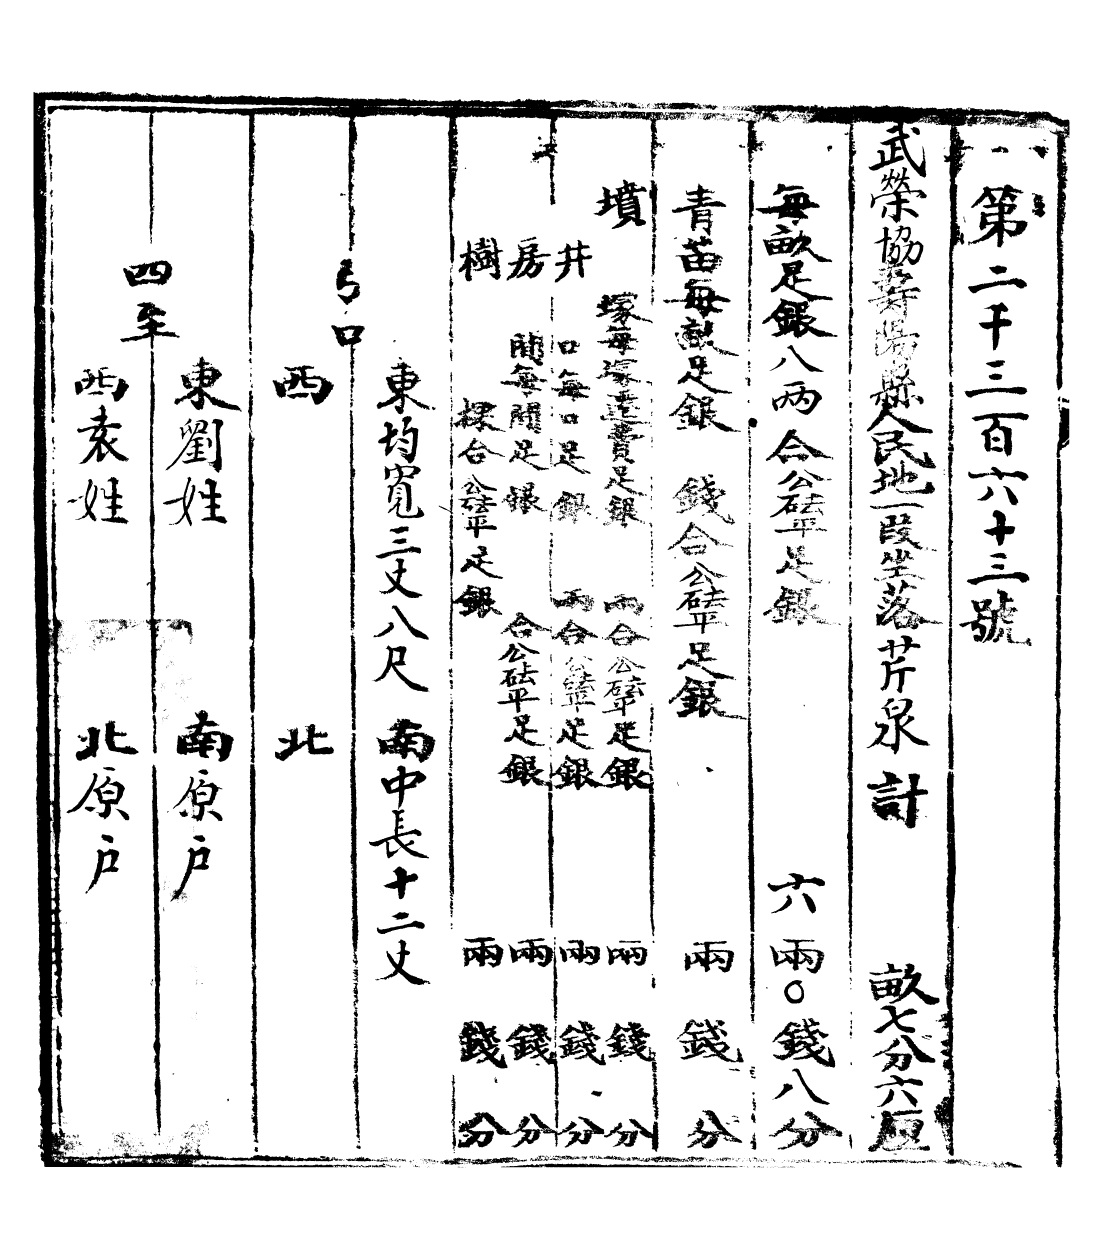 第二千三百六十三號
武榮協壽陽縣人民地一段坐落芹泉計 畝七分六厘
每畝足銀八兩合公砝平足銀 六兩〇錢八分
青苗每畝足銀 錢合公砝平足銀 兩 錢 分
墳塚每塚遷費足銀 兩合公砝平足銀 兩 錢 分
井 口每口足銀 兩合公砝平足銀 兩 錢 分
房 間每間足銀 合公砝平足銀 兩 錢 分
樹 棵合公砝平足銀 兩 錢 分
弓口
東均寬三丈八尺 南中長十二丈
西 北
四至
東劉姓 南原戶
西袁姓 北原戶